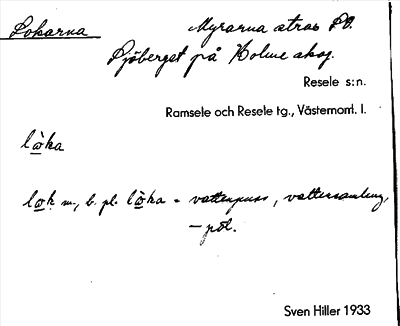 Lokarna Myrarna utras SV.
Sjöberget på Holme skog.
Resele s:n.
Ramsele och Resele tg., Västernorrl. l.
lò̱ka
lo̱k m., b. pl. lò̱ka = vattenpuss, vattensamling,
- pöl.
Sven Hiller 1933